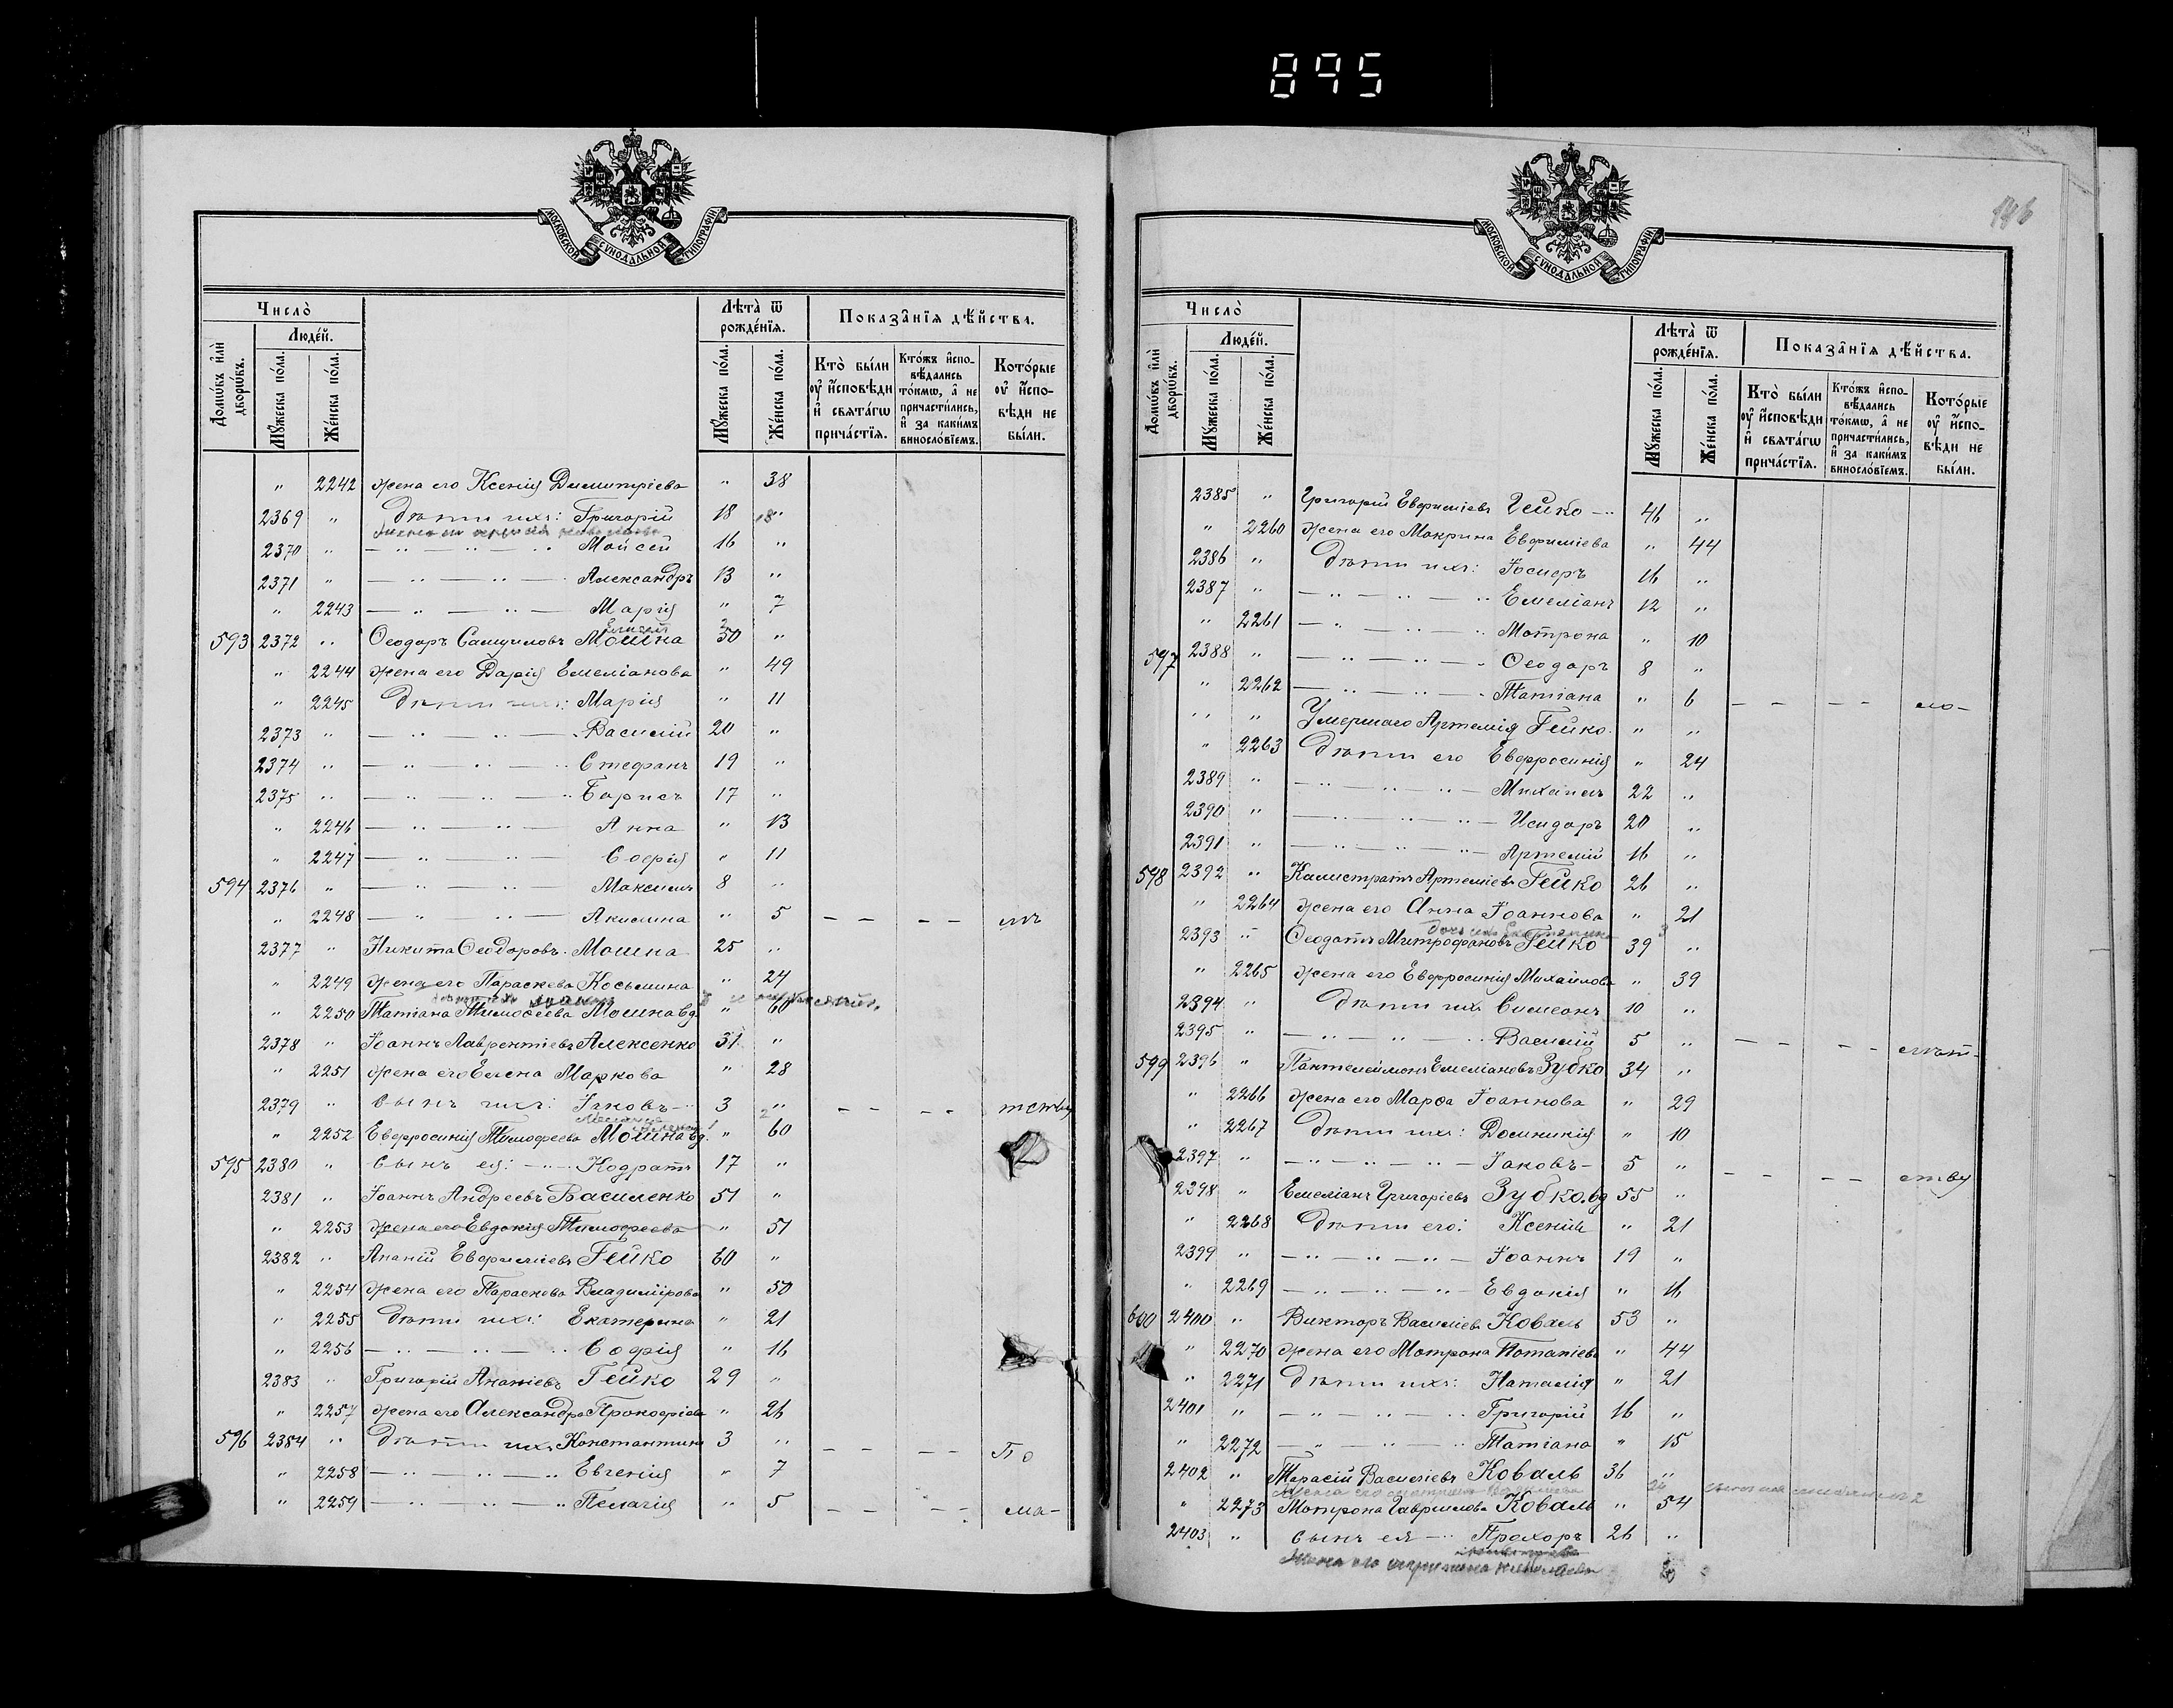 895
146
МОСКОВСКОЙ СѴНОДАЛЬНОЙ ТИПОГРАФІИ
Число̀
Лѣта̀ ѿ рожде́нїѧ.
Показа̑нїѧ дѣ́йства.
Домѡ́въ и҆лѝ дворѡ́въ.
Люде́й.
Мꙋ́жеска по́ла.
Же́нска по́ла.
Мꙋ́жеска по́ла.
Же́нска по́ла.
Кто̀ бы́ли оу҆ и҆́сповѣди и҆ свѧта́гѡ прича́стїѧ.
Кто́жъ и҆спо-вѣ́дались то́кмѡ, а҆ не причасти́лись, и҆ за каки́мъ виносло́вїемъ.
Кото́рые оу҆ и҆́спо-вѣди не бы́ли.
" 2242 жена его Ксенія Димитріева " 38
2369 " дѣти ихъ: Григорій 18 "
2370 " — " — " — Моисей 16 "
2371 " — " — " — Александръ 13 "
" 2243 — " — " — Марія " 7
593 2372 " Ѳеодоръ Самуиловъ Мошна 50 "
" 2244 жена его Дарія Емеліанова " 49
" 2245 дѣти ихъ: Марія " 11
2373 " — " — " — Василій 20 "
2374 " — " — " — Стефанъ 19 "
2375 " — " — " — Борисъ 17 "
" 2246 — " — " — Анна " 13
" 2247 — " — " — Софія " 11
594 2376 " — " — " — Максимъ 8 "
" 2248 — " — " — Акилина " 5 — — — — мъ
2377 " Никита Ѳеодоровъ Мошна 25 "
" 2249 жена его Параскева Косьмина " 24
" 2250 Татіана Тимоѳеева Мошна вд. " 60
2378 " Іоаннъ Лаврентіевъ Алексенко 31 "
" 2251 жена его Елена Маркова " 28
2379 " сынъ ихъ: Іаковъ 3 " — — — — тству
" 2252 Евфросинія Тимофеева Мошна вд. " 60
595 2380 " сынъ ея: — Кодратъ 17 "
2381 " Іоаннъ Андреевъ Василенко 51 "
" 2253 жена его Евдокія Тимофеева " 51
2382 " Ананій Евфиміевъ Гейко 60 "
" 2254 жена его Параскева Владимірова " 50
" 2255 дѣти ихъ: Екатерина " 21
" 2256 — " — " — Софія " 16
2383 " Григорій Ананіевъ Гейко 29 "
" 2257 жена его Александра Прокофіева " 26
596 2384 " дѣти ихъ: Константинъ 3 " — — — — По
" 2258 — " — " — Евгенія " 7
" 2259 — " — " — Пелагія " 5 — — — — ма-
МОСКОВСКОЙ СѴНОДАЛЬНОЙ ТИПОГРАФІИ
Число̀
Лѣта̀ ѿ рожде́нїѧ.
Показа̑нїѧ дѣ́йства.
Домѡ́въ и҆лѝ дворѡ́въ.
Люде́й.
Мꙋ́жеска по́ла.
Же́нска по́ла.
Мꙋ́жеска по́ла.
Же́нска по́ла.
Кто̀ бы́ли оу҆ и҆́сповѣди и҆ свѧта́гѡ прича́стїѧ.
Кто́жъ и҆спо-вѣ́дались то́кмѡ, а҆ не причасти́лись, и҆ за каки́мъ виносло́вїемъ.
Кото́рые оу҆ и҆́спо-вѣди не бы́ли.
2385 " Григорій Евфиміевъ Гейко 46 "
" 2260 жена его Макрина Евфиміева " 44
2386 " дѣти ихъ: Іосифъ 16 "
2387 " — " — " — Емеліанъ 12 "
" 2261 — " — " — Мотрона " 10
597 2388 " — " — " — Ѳеодоръ 8 "
" 2262 — " — " — Татіана " 6 — — — — ло-
" " Умершаго Артемія Гейко " "
" 2263 дѣти его Евфросинія " 24
2389 " — " — " — Михаилъ 22 "
2390 " — " — " — Исидоръ 20 "
2391 " — " — " — Артемій 16 "
598 2392 " Калистратъ Артеміевъ Гейко 26 "
" 2264 жена его Анна Іоаннова " 21
дочь ихъ Екатерина
2393 " Ѳеодотъ Митрофановъ Гейко 39 "
" 2265 жена его Евфросинія Михайлова " 39
2394 " дѣти ихъ Симеонъ 10 "
2395 " — " — " — Василій 5 " — — — —
599 2396 " Пантелеймонъ Емеліановъ Зубко 34 "
" 2266 жена его Марѳа Іоаннова " 29
" 2267 дѣти ихъ: Домникія " 10
2397 " — " — " — Іаковъ 5 " — — — — ству
2398 " Емеліанъ Григоріевъ Зубко вд 55 "
" 2268 дѣти его: Ксенія " 21
2399 " — " — " — Іоаннъ 19 "
" 2269 — " — " — Евдокія " 16
600 2400 " Викторъ Василіевъ Коваль 53 "
" 2270 жена его Мотрона Потапіева " 44
" 2271 дѣти ихъ: Наталія " 21
2401 " — " — " — Григорій 16 "
" 2272 — " — " — Татіана " 15
2402 " Тарасій Василіевъ Коваль 36 "
" 2273 Мотрона Гавриилова Коваль " 54
2403 " сынъ ея — Прохоръ 26 "
жена его